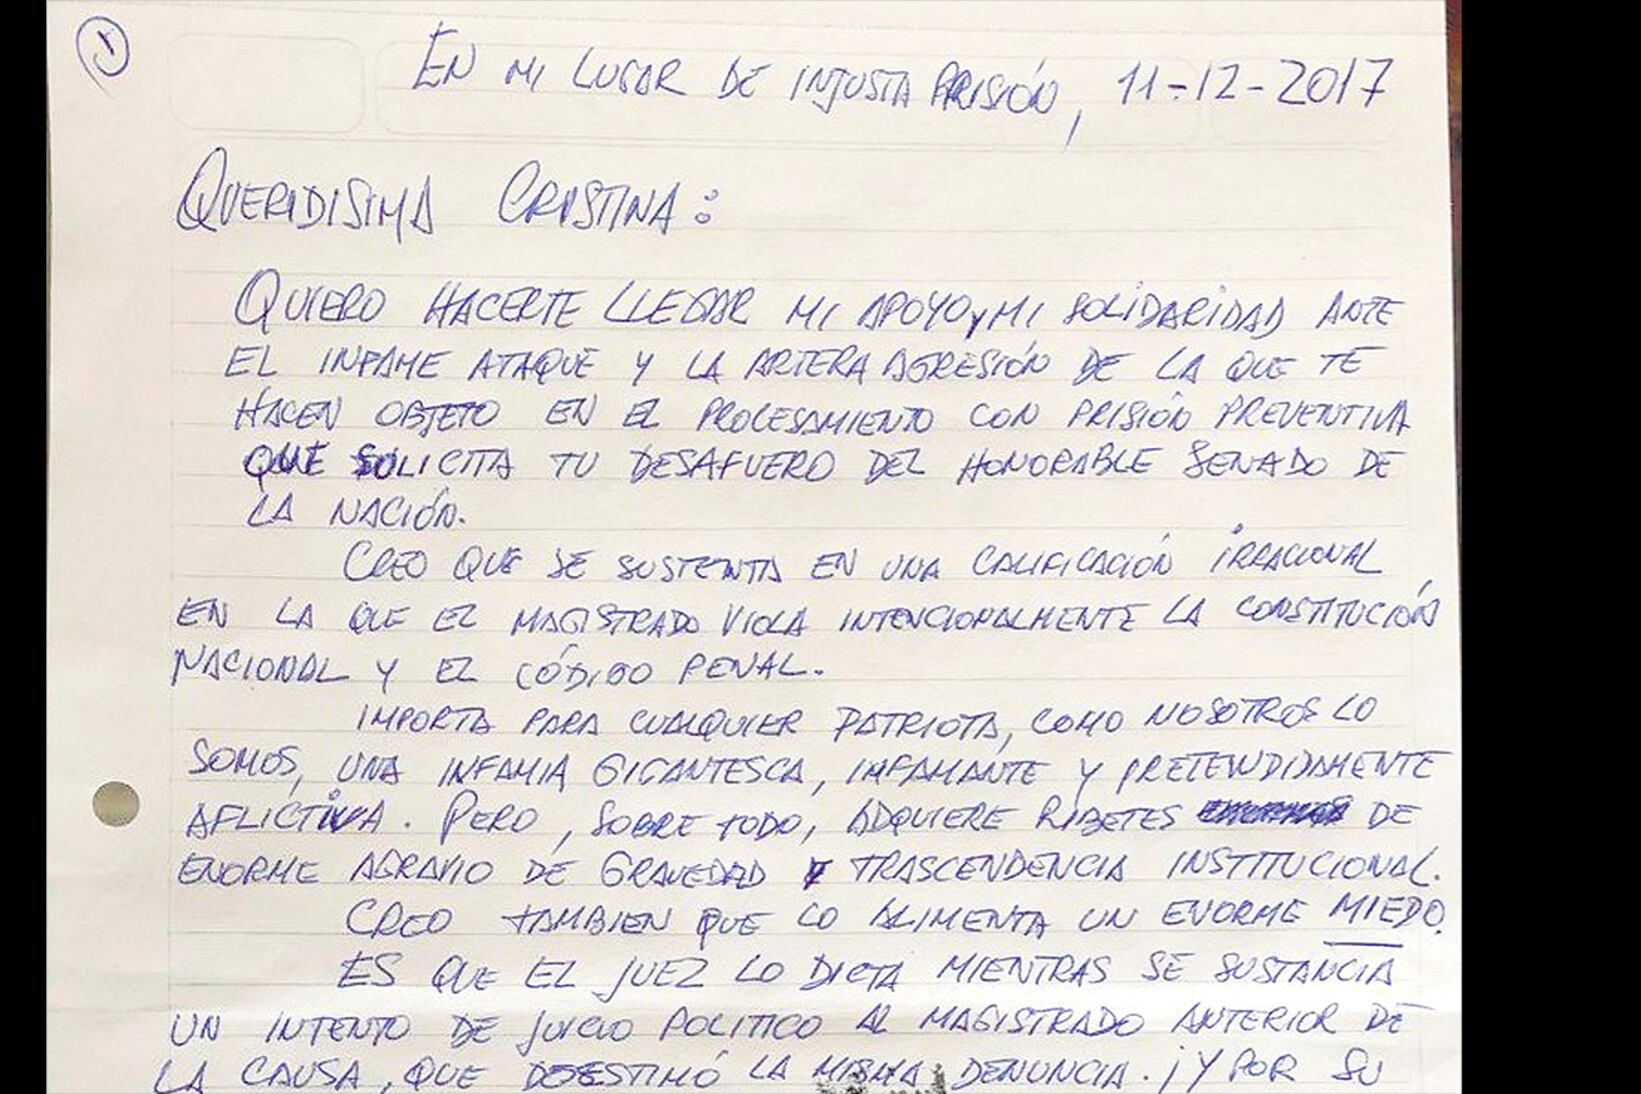 1
EN MI LUGAR DE INJUSTA PRISIÓN, 11-12-2017
QUERIDISIMA CRISTINA:
QUIERO HACERTE LLEGAR MI APOYO y MI SOLIDARIDAD ANTE
EL INFAME ATAQUE Y LA ARTERA AGRESIÓN DE LA QUE TE
HACEN OBJETO EN EL PROCESAMIENTO CON PRISIÓN PREVENTIVA
QUE SOLICITA TU DESAFUERO DEL HONORABLE SENADO DE
LA NACIÓN.
CREO QUE SE SUSTENTA EN UNA CALIFICACIÓN IRRACIONAL
EN LA QUE EL MAGISTRADO VIOLA INTENCIONALMENTE LA CONSTITUCIÓN
NACIONAL Y EL CÓDIGO PENAL.
IMPORTA PARA CUALQUIER PATRIOTA, COMO NOSOTROS LO
SOMOS, UNA INFAMIA GIGANTESCA, INFAMANTE Y PRETENDIDAMENTE
AFLICTIVA. PERO, SOBRE TODO, ADQUIERE RIBETES DE
ENORME AGRAVIO DE GRAVEDAD Y TRASCENDENCIA INSTITUCIONAL.
CREO TAMBIEN QUE LO ALIMENTA UN ENORME MIEDO.
ES QUE EL JUEZ LO DICTA MIENTRAS SE SUSTANCIA
UN INTENTO DE JUICIO POLITICO AL MAGISTRADO ANTERIOR DE
LA CAUSA, QUE DESESTIMÓ LA MISMA DENUNCIA. ¡Y POR SU